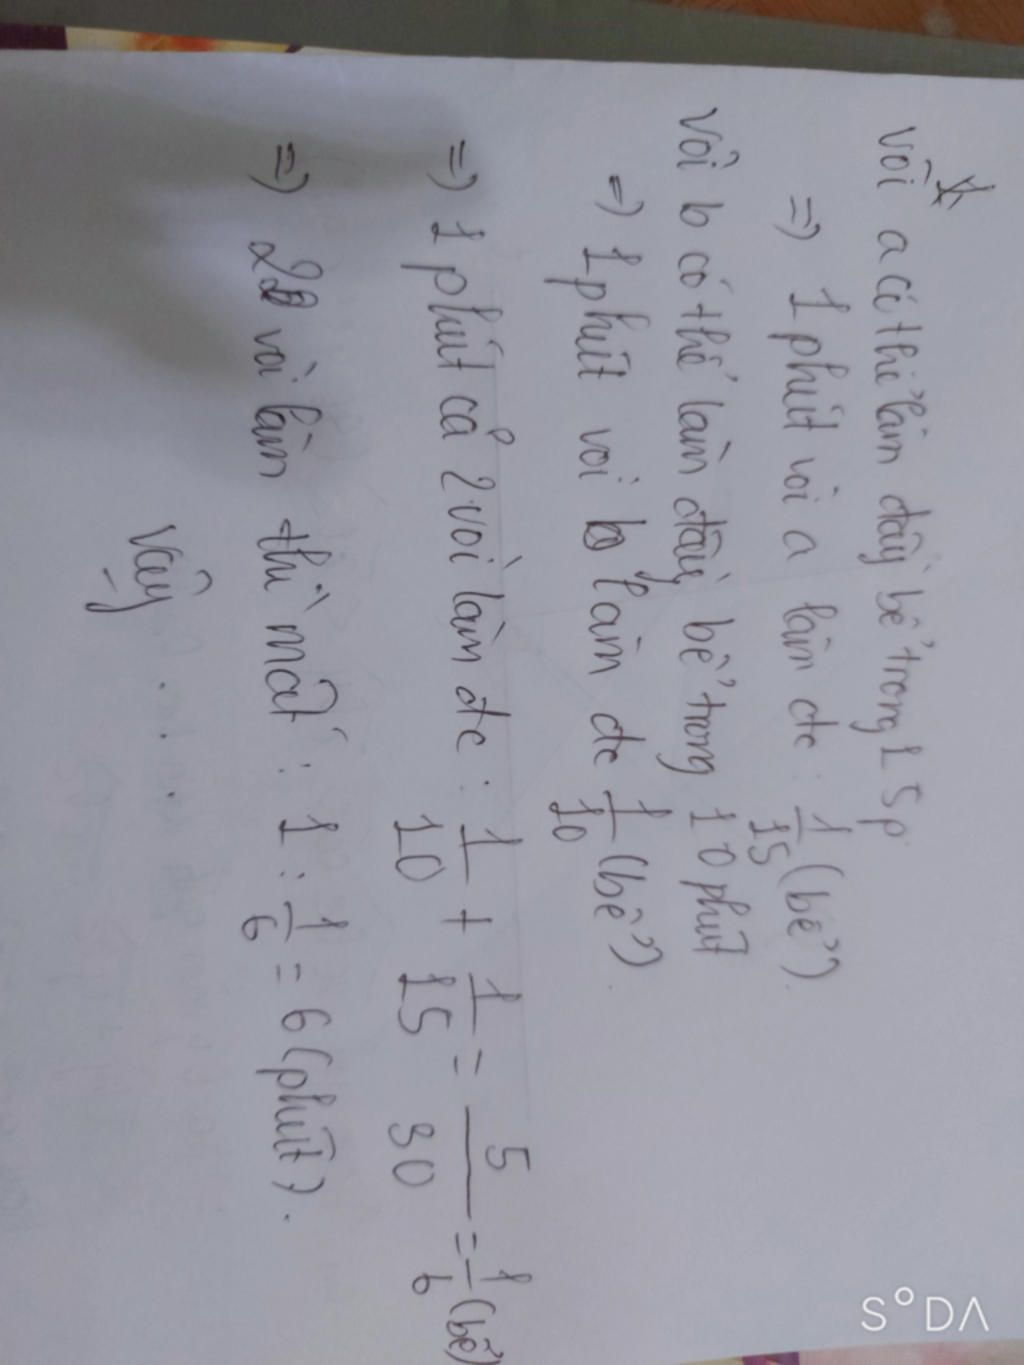 Vòi a có thể làm đầy bể trong 15p
=> 1 phút vòi a làm đc : 1/15 (bể).
Vòi b có thể làm đầy bể trong 10 phút
=> 1 phút vòi b làm đc 1/10 (bể).
=> 1 phút cả 2 vòi làm đc : 1/10 + 1/15 = 5/30 = 1/6 (bể)
=> 2 vòi làm thì mất : 1 : 1/6 = 6 (phút).
Vậy . . .
SODA